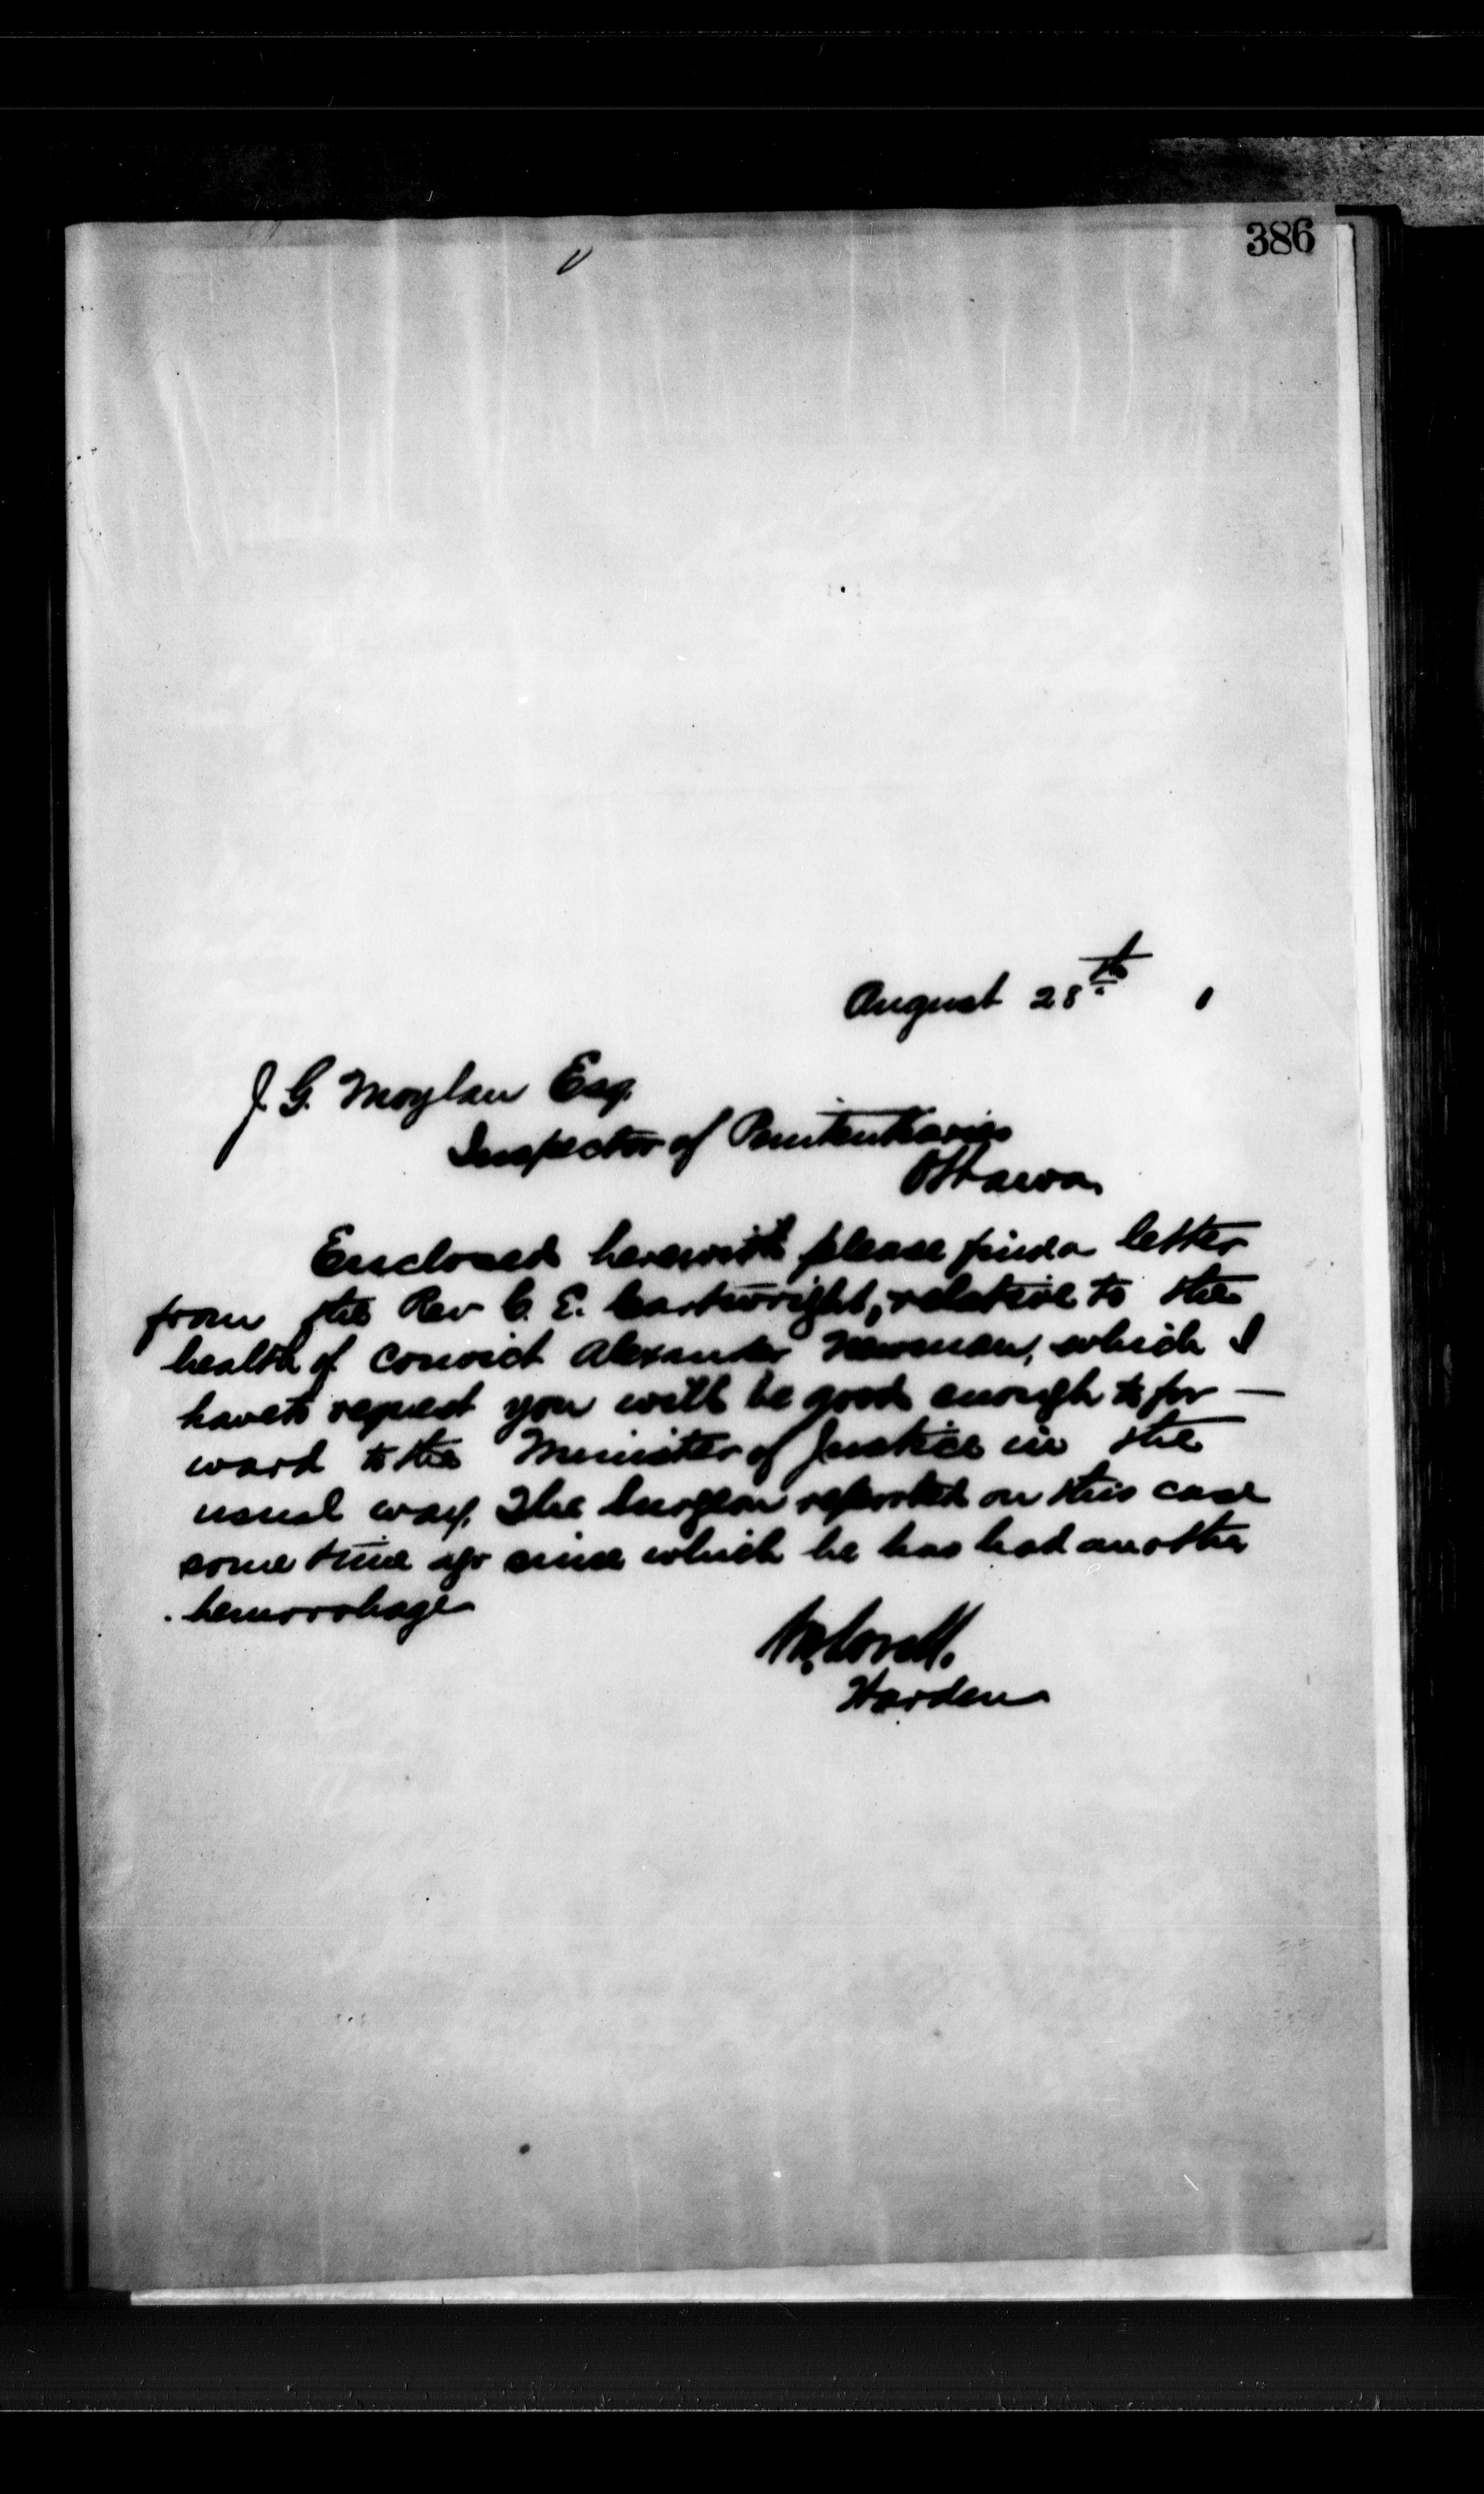 386
August 28th 1
J. G. Moylan Esq.
Inspector of Penitentiaries
Ottawa,
Enclosed herewith please find a letter
from the Rev C. E. Cartwright, relative to the
health of Convict Alexander Newman, which I
have to request you will be good enough to for-
ward to the Minister of Justice in the
usual way. The Surgeon reported on this case
some time ago since which he has had another
hemorrhage
Warden